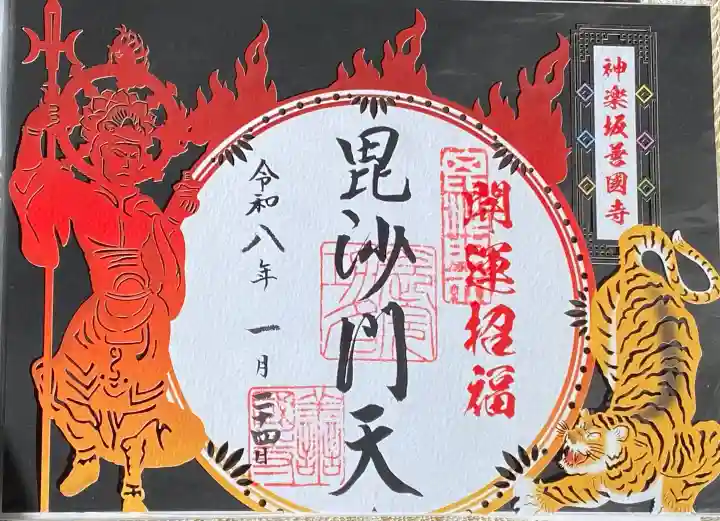 神楽坂善國寺
開運招福
毘沙門天
令和八年 一月 二十四日